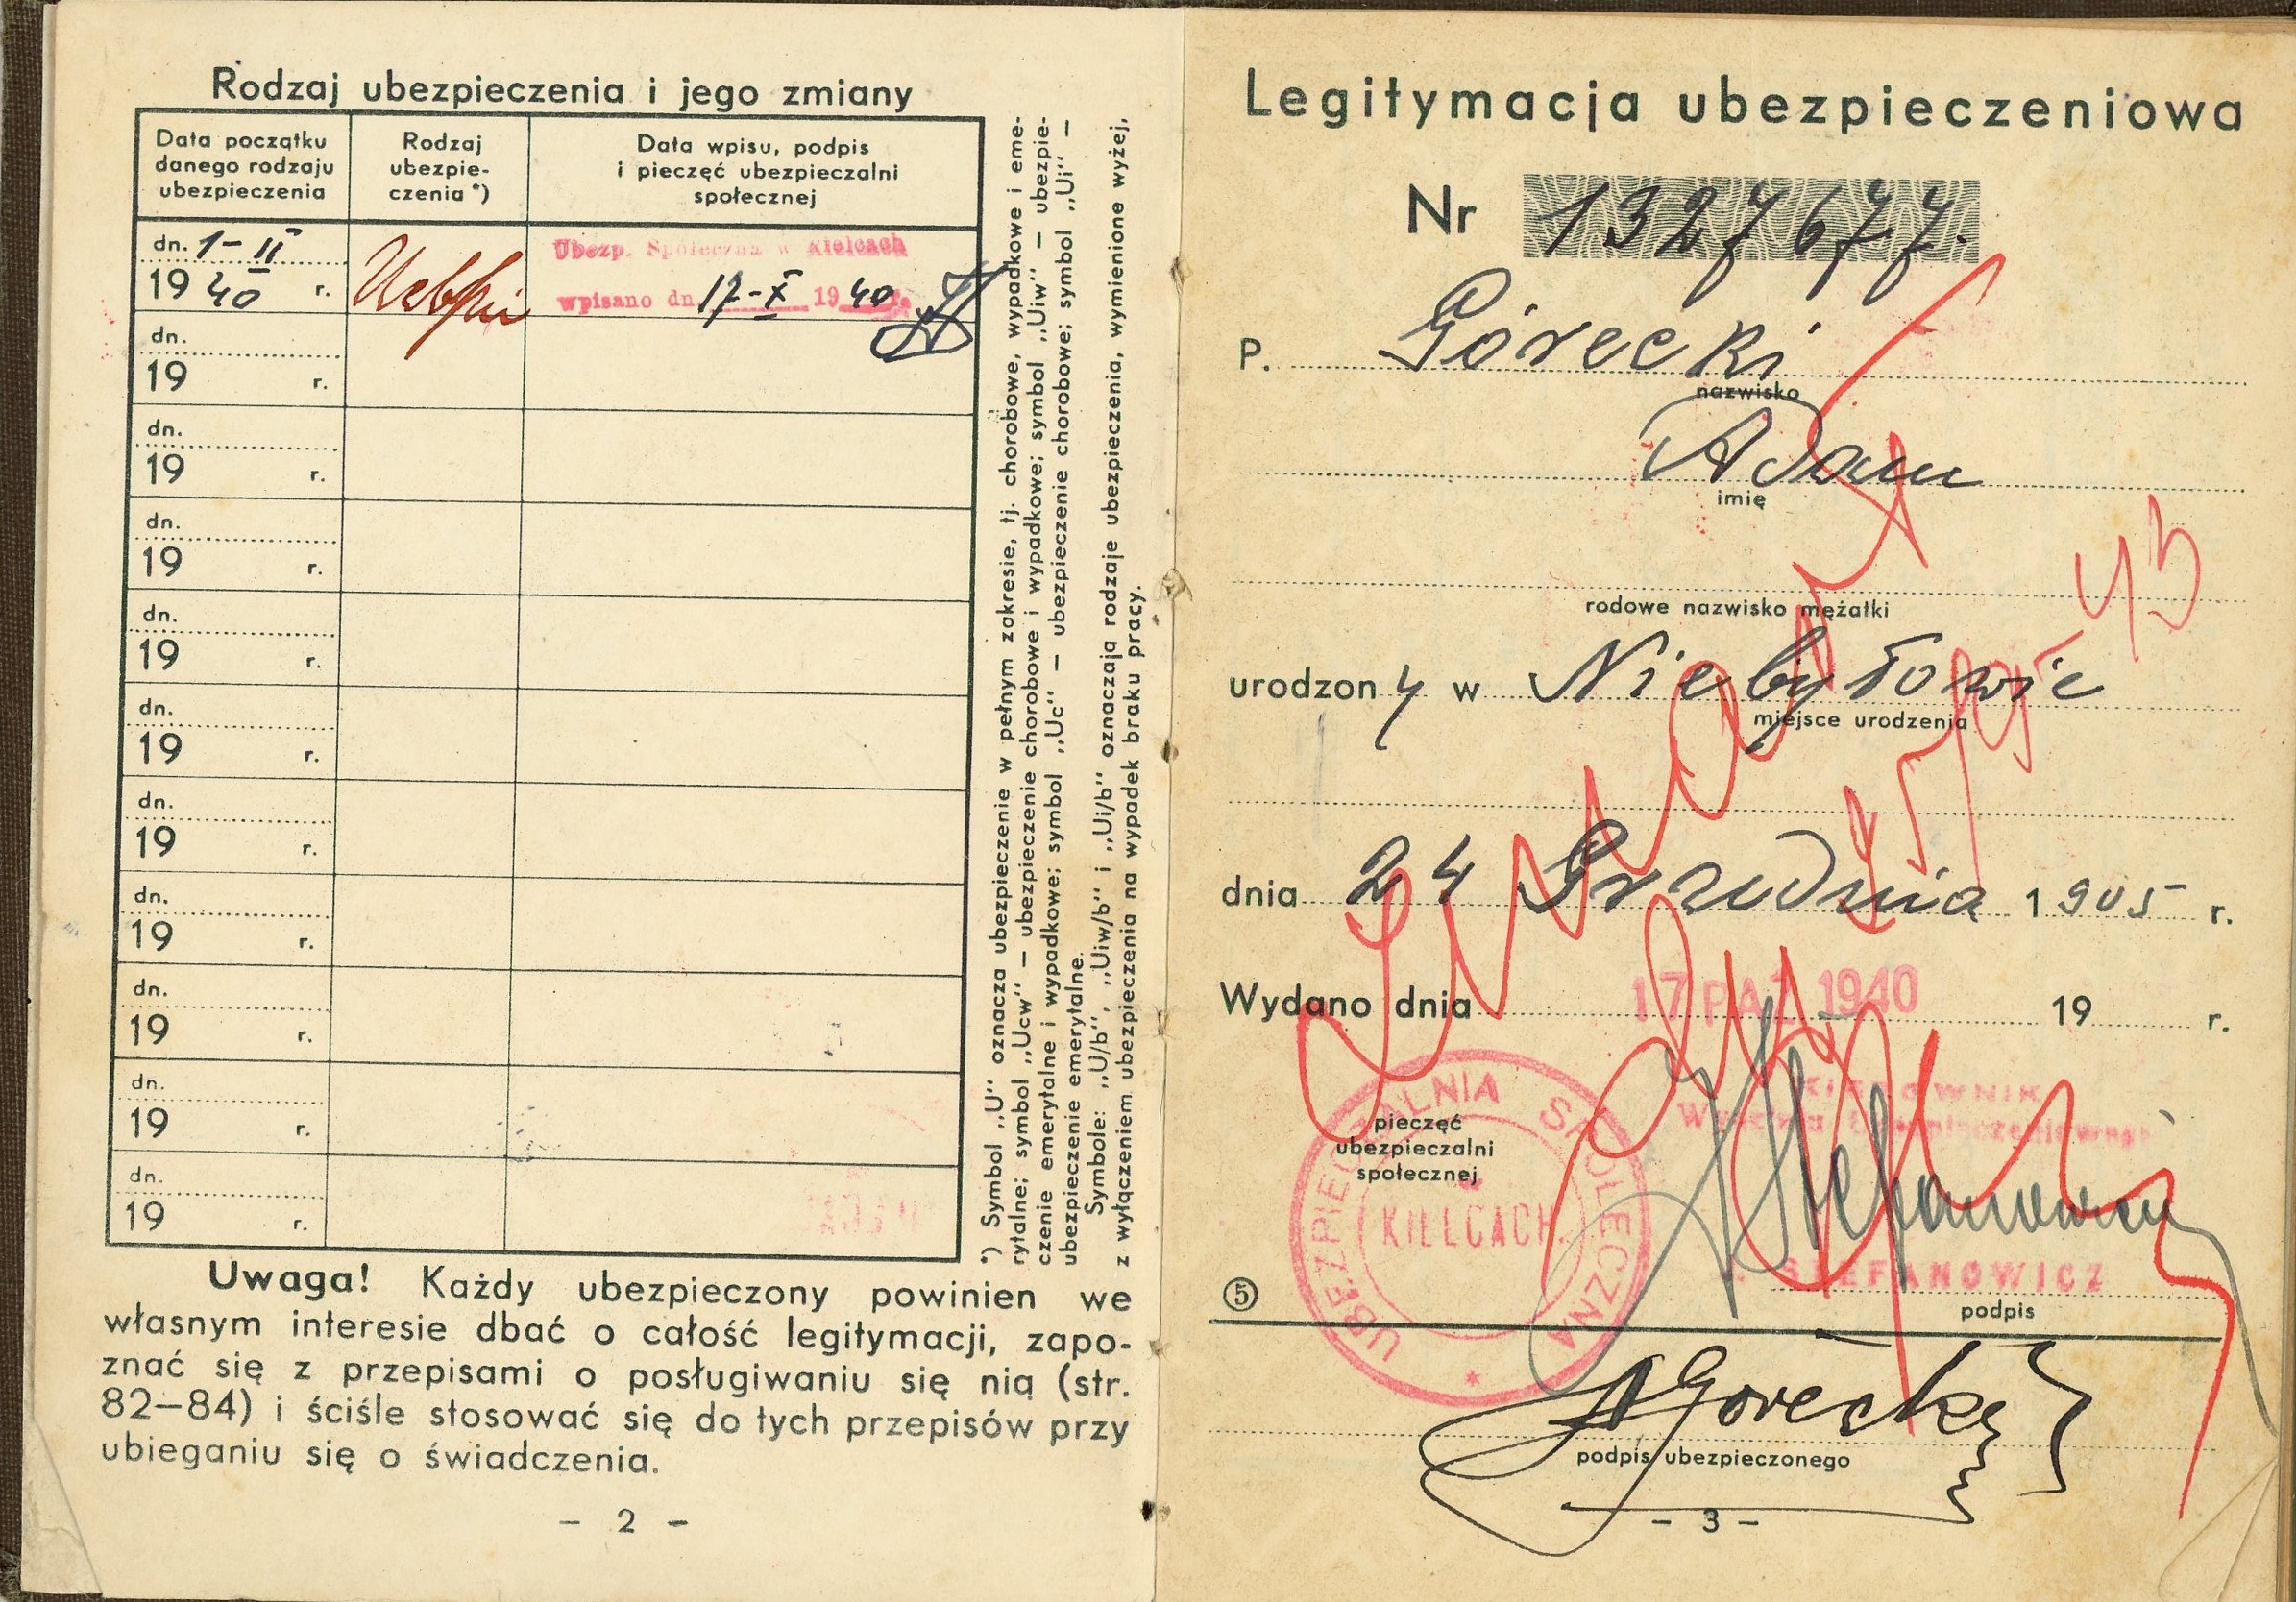 Rodzaj ubezpieczenia i jego zmiany
Data początku
danego rodzaju
ubezpieczenia
Rodzaj
ubezpie-
czenia *)
Data wpisu, podpis
i pieczęć ubezpieczalni
społecznej
dn. 1-II
1940 r.
Ubezp. Społeczna w Kielcach
wpisano dn. 17-X 1940 r.
dn.
19 r.
dn.
19 r.
dn.
19 r.
dn.
19 r.
dn.
19 r.
dn.
19 r.
dn.
19 r.
dn.
19 r.
dn.
19 r.
dn.
19 r.
*) Symbol „U" oznacza ubezpieczenie w pełnym zakresie, tj. chorobowe, wypadkowe i eme-
rytalne; symbol „Ucw" — ubezpieczenie chorobowe i wypadkowe; symbol „Uiw" — ubezpie-
czenie emerytalne i wypadkowe; symbol „Uc" — ubezpieczenie chorobowe; symbol „Ui" —
ubezpieczenie emerytalne.
Symbole: „U/b", „Uiw/b" i „Ui/b" oznaczają rodzaje ubezpieczenia, wymienione wyżej,
z wyłączeniem ubezpieczenia na wypadek braku pracy.
Uwaga! Każdy ubezpieczony powinien we
własnym interesie dbać o całość legitymacji, zapo-
znać się z przepisami o posługiwaniu się nią (str.
82—84) i ściśle stosować się do tych przepisów przy
ubieganiu się o świadczenia.
— 2 —
Legitymacja ubezpieczeniowa
Nr 1327677.
P. Górecki
nazwisko
Adam
imię
rodowe nazwisko mężatki
urodzony w Niebyłowie
miejsce urodzenia
dnia 24 Grudnia 1905 r.
Wydano dnia 17 PAZ 1940 19 r.
KIEROWNIK
pieczęć
ubezpieczalni
społecznej
UBEZPIECZALNIA SPOŁECZNA
KIELCACH
STEFANOWICZ
podpis
5
A Górecki
podpis ubezpieczonego
— 3 —